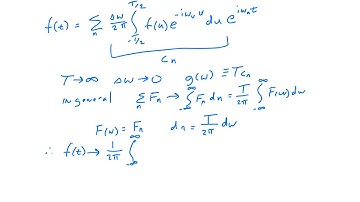 f(t) = Σ_n Δω/2π ∫_{-T/2}^{T/2} f(u) e^{-iω_n u} du e^{iω_n t}
C_n
T→∞ Δω→0 g(ω) ≡ T c_n
in general Σ_n F_n → ∫_{-∞}^{∞} F_n dn = T/2π ∫_{-∞}^{∞} F(ω) dω
F(ω) = F_n dn = T/2π dω
∴ f(t) → 1/2π ∫_{-∞}^{∞}